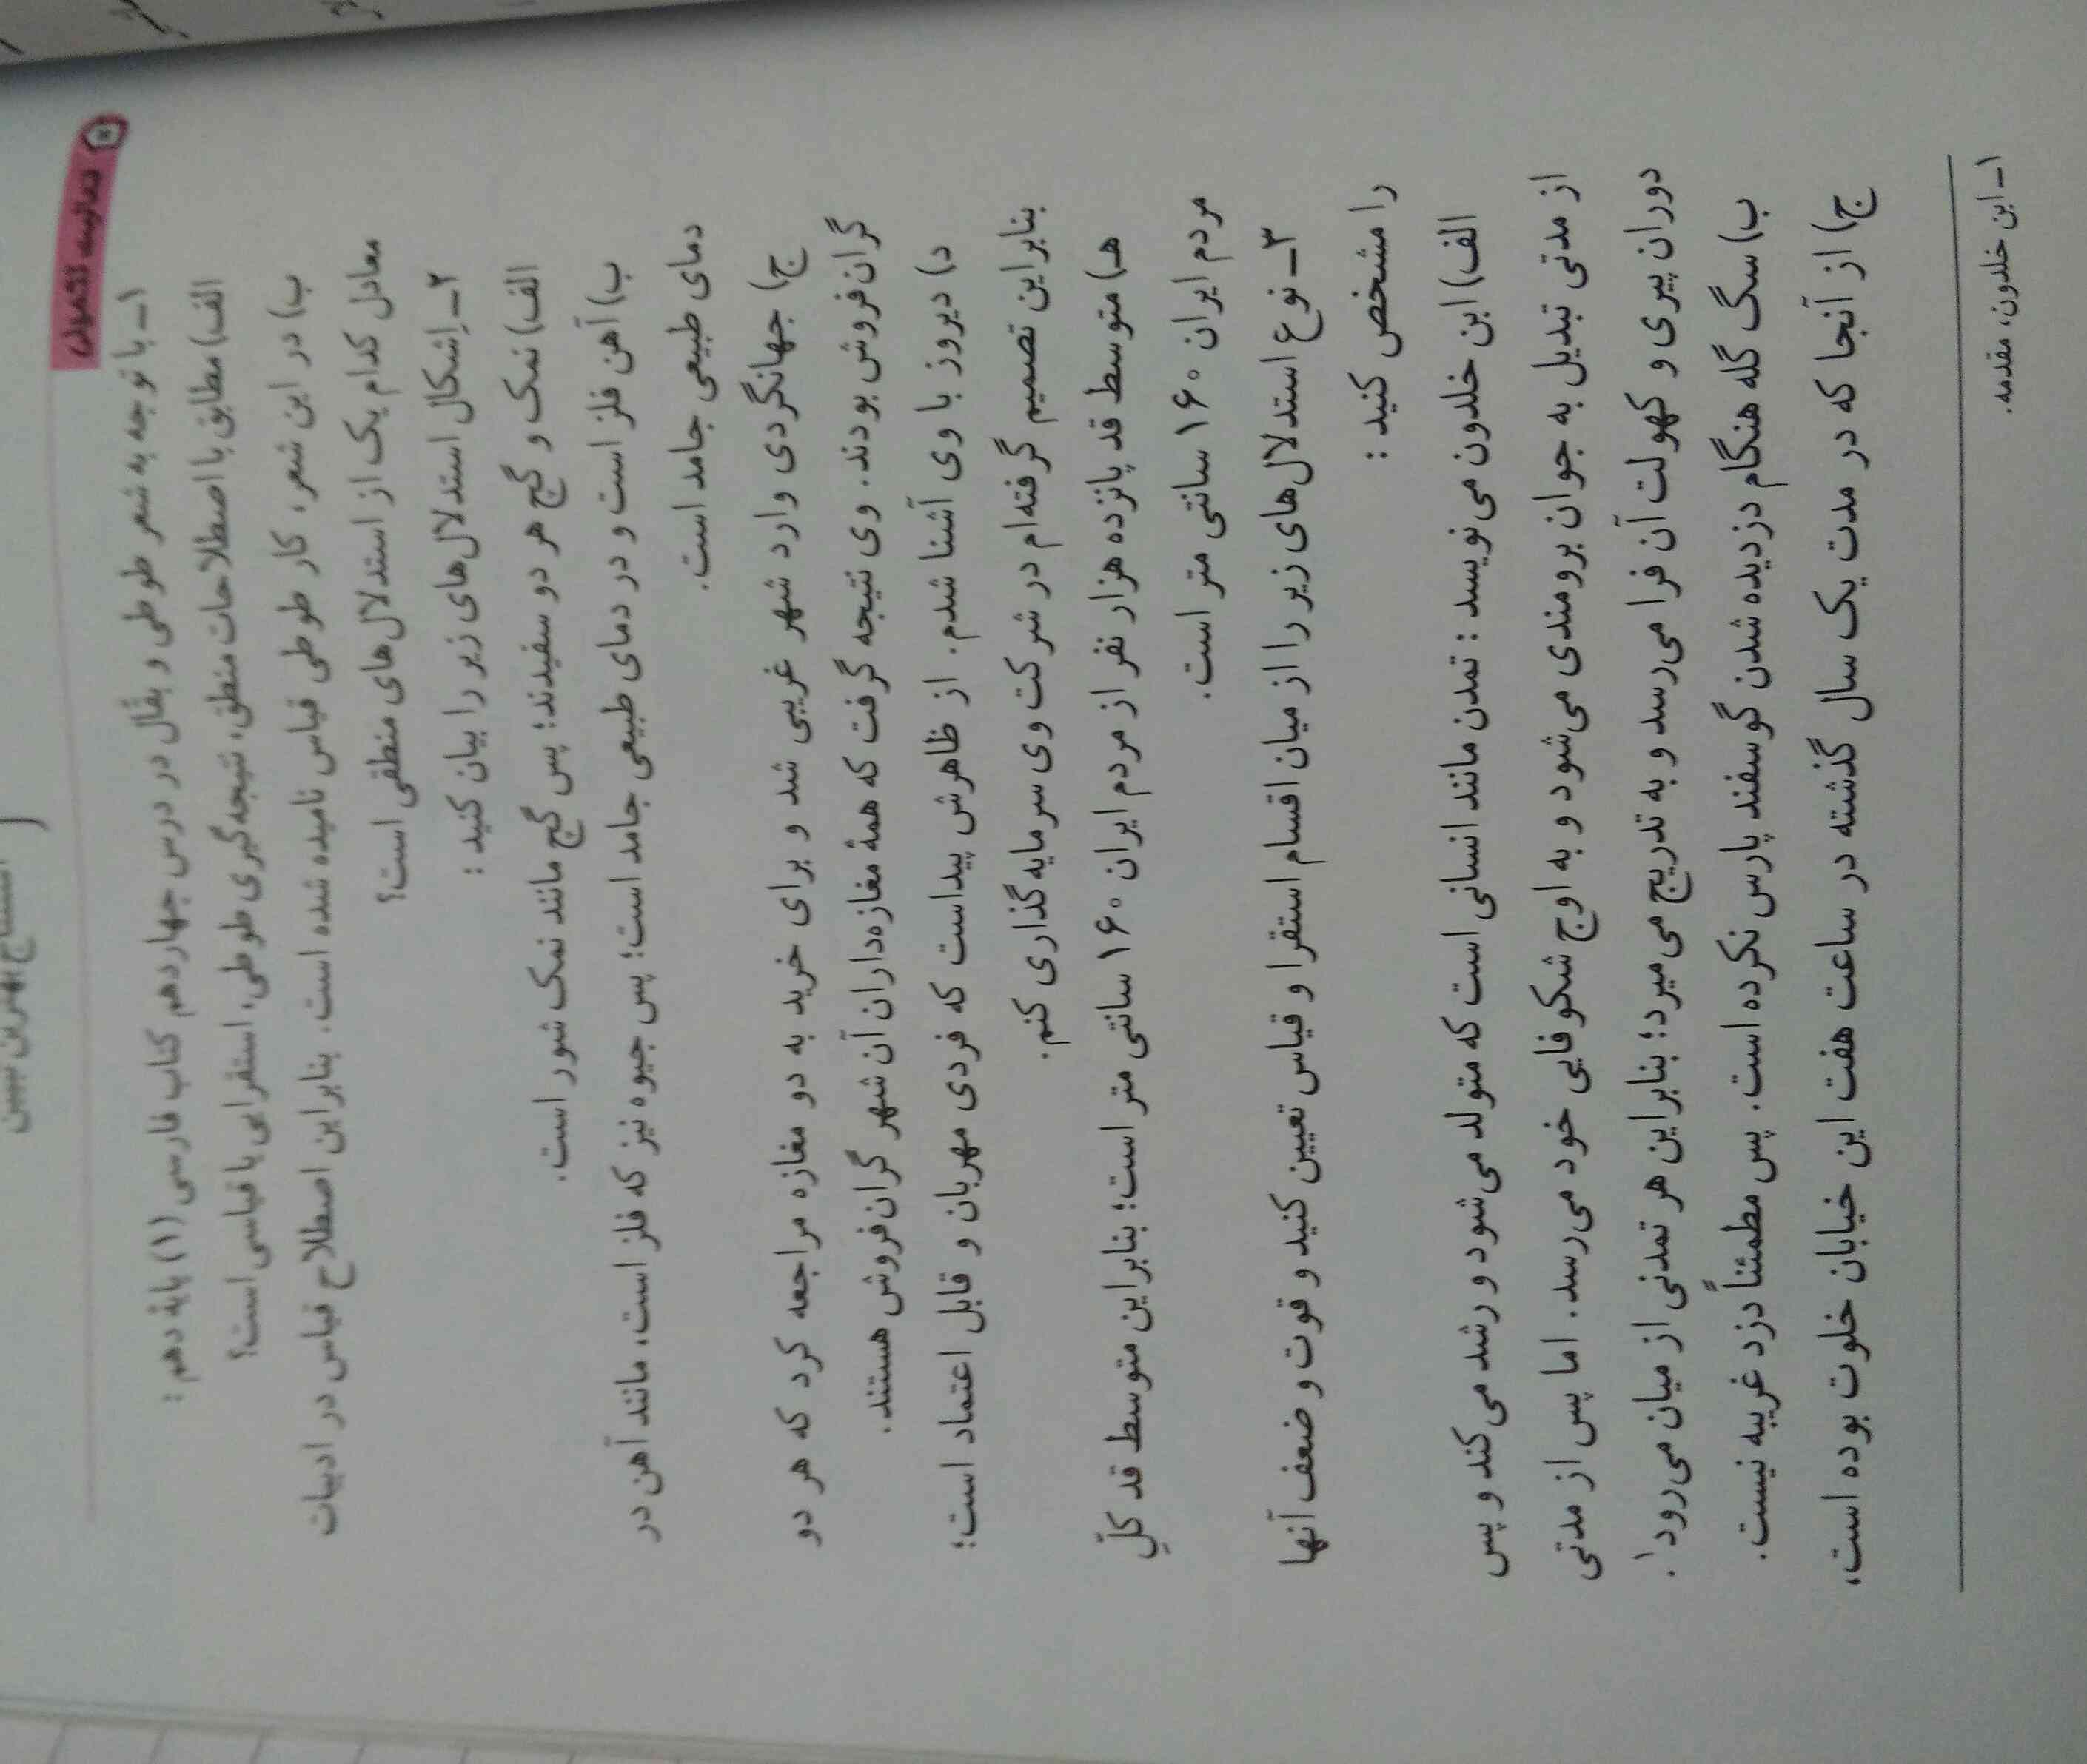 فعالیت تکمیلی
۱ـ با توجه به شعر طوطی و بقّال در درس چهاردهم کتاب فارسی (۱) پایهٔ دهم :
الف) مطابق با اصطلاحات منطق، نتیجه‌گیری طوطی، استقرایی یا قیاسی است؟
ب) در این شعر، کار طوطی قیاس نامیده شده است. بنابراین اصطلاح قیاس در ادبیات
معادل کدام یک از استدلال‌های منطقی است؟
۲ـ اِشکال استدلال‌های زیر را بیان کنید :
الف) نمک و گچ هر دو سفیدند؛ پس گچ مانند نمک شور است.
ب) آهن فلز است و در دمای طبیعی جامد است؛ پس جیوه نیز که فلز است، مانند آهن در
دمای طبیعی جامد است.
ج) جهانگردی وارد شهر غریبی شد و برای خرید به دو مغازه مراجعه کرد که هر دو
گران‌فروش بودند. وی نتیجه گرفت که همهٔ مغازه‌داران آن شهر گران‌فروش هستند.
د) دیروز با وی آشنا شدم. از ظاهرش پیداست که فردی مهربان و قابل اعتماد است؛
بنابراین تصمیم گرفته‌ام در شرکت وی سرمایه‌گذاری کنم.
هـ) متوسط قد پانزده هزار نفر از مردم ایران ۱۶۰ سانتی متر است؛ بنابراین متوسط قد کلّ
مردم ایران ۱۶۰ سانتی متر است.
۳ـ نوع استدلال‌های زیر را از میان اقسام استقرا و قیاس تعیین کنید و قوت و ضعف آنها
را مشخص کنید :
الف) ابن خلدون می‌نویسد : تمدن مانند انسانی است که متولد می‌شود و رشد می‌کند و پس
از مدتی تبدیل به جوان برومندی می‌شود و به اوج شکوفایی خود می‌رسد. اما پس از مدتی
دوران پیری و کهولت آن فرا می‌رسد و به تدریج می‌میرد؛ بنابراین هر تمدنی از میان می‌رود۱.
ب) سگ گله هنگام دزدیده شدن گوسفند پارس نکرده است. پس مطمئناً دزد غریبه نیست.
ج) از آنجا که در مدت یک سال گذشته در ساعت هفت این خیابان خلوت بوده است،
۱ـ ابن خلدون، مقدمه.